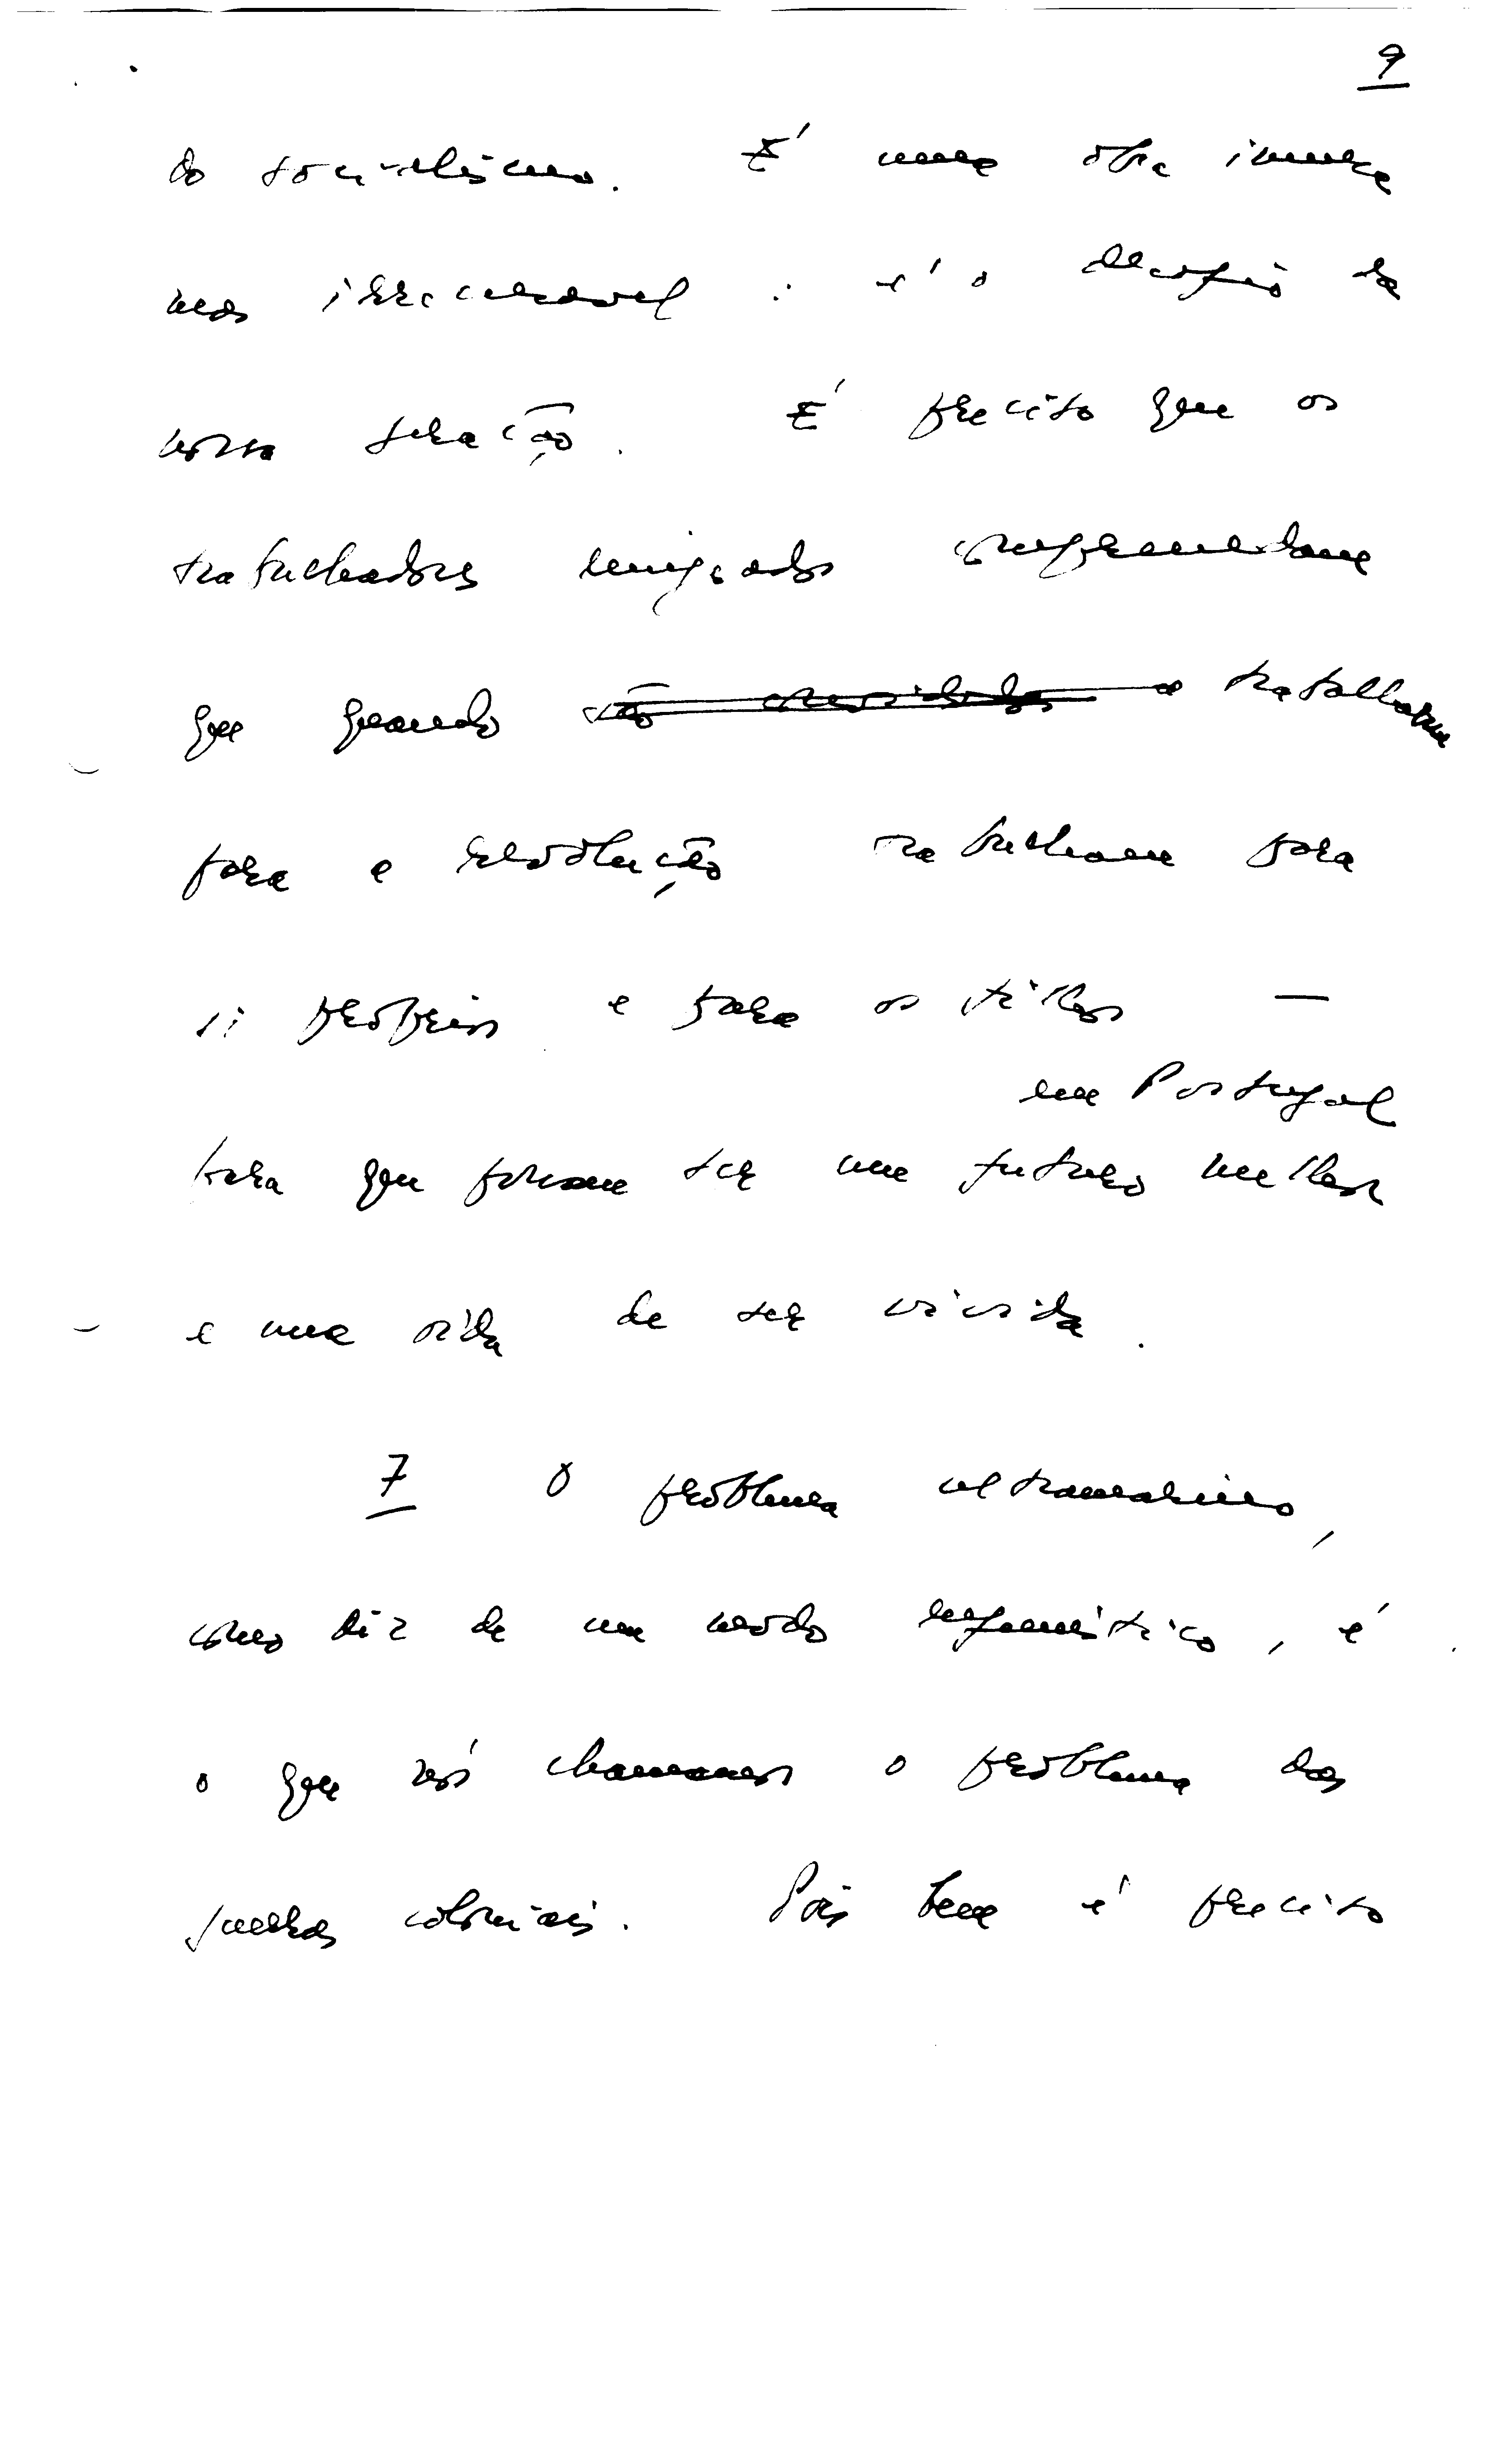 9
do socialismo. É uma obra imensa
mas irrecusável: é o desafio da
nossa geração. É preciso que os
trabalhadores emigrados compreendam
que quando são convidados a trabalharem
para a revolução trabalham para
si próprios e para os filhos —
em Portugal
para que possam ter um futuro melhor
e uma vida de ser vivida.
7 O problema ultramarino,
como diz de um modo eufemístico, é
o que nós chamamos o problema das
guerras coloniais. Pois bem é preciso